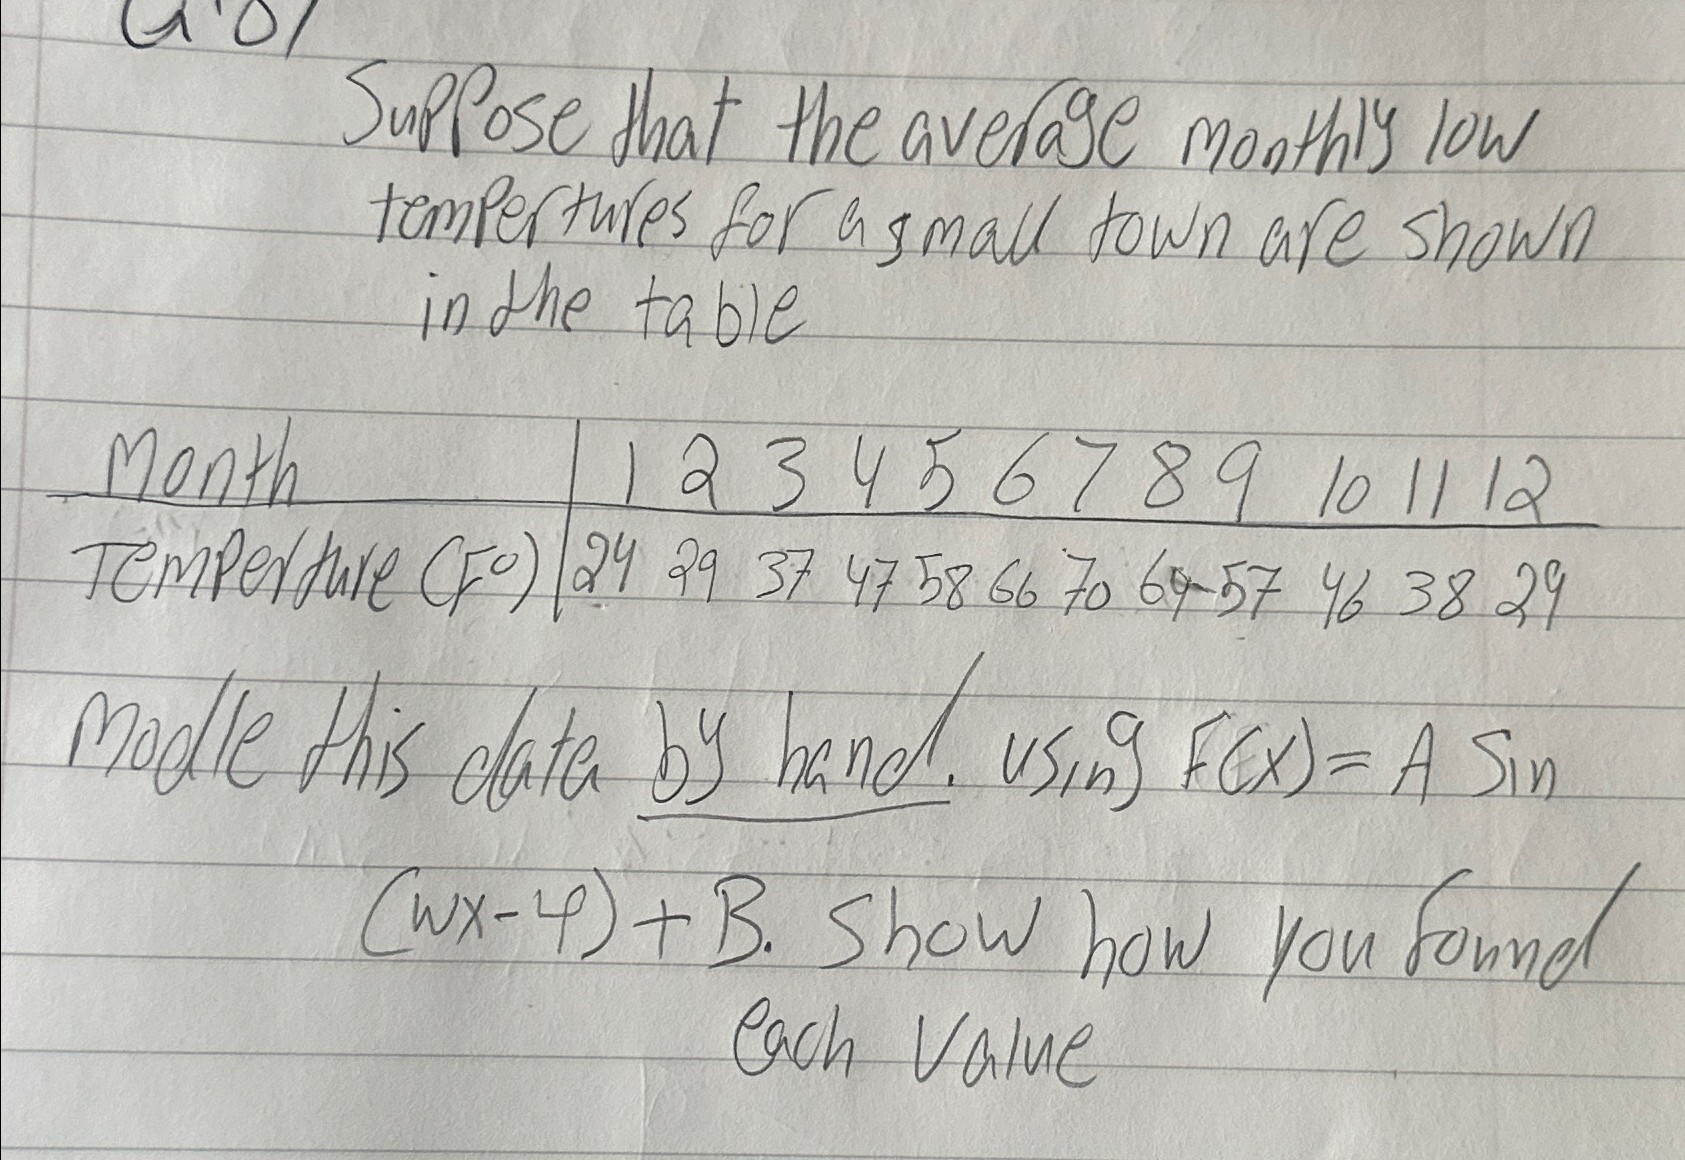 Suppose that the average monthly low
tempertures for a small town are shown
in the table
Month 1 2 3 4 5 6 7 8 9 10 11 12
Temperture (F°) 24 29 37 47 58 66 70 69 57 46 38 29
Modle this data by hand. using F(x) = A Sin
(wx-φ) + B. Show how you found
each value